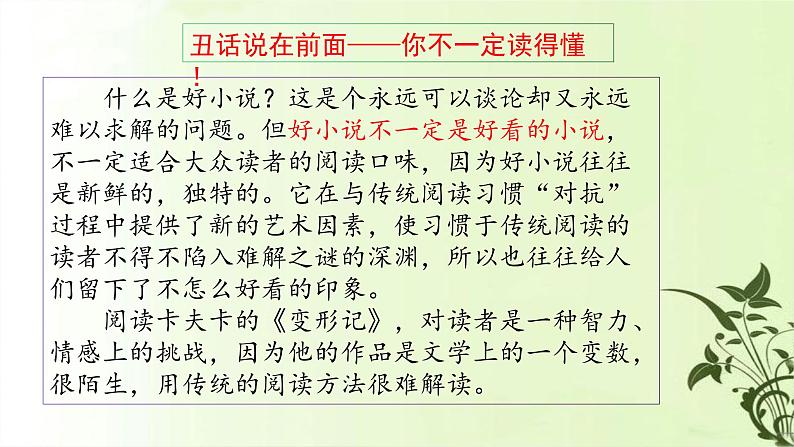 丑话说在前面——你不一定读得懂
！
什么是好小说？这是个永远可以谈论却又永远
难以求解的问题。但好小说不一定是好看的小说，
不一定适合大众读者的阅读口味，因为好小说往往
是新鲜的，独特的。它在与传统阅读习惯“对抗”
过程中提供了新的艺术因素，使习惯于传统阅读的
读者不得不陷入难解之谜的深渊，所以也往往给人
们留下了不怎么好看的印象。
阅读卡夫卡的《变形记》，对读者是一种智力、
情感上的挑战，因为他的作品是文学上的一个变数，
很陌生，用传统的阅读方法很难解读。